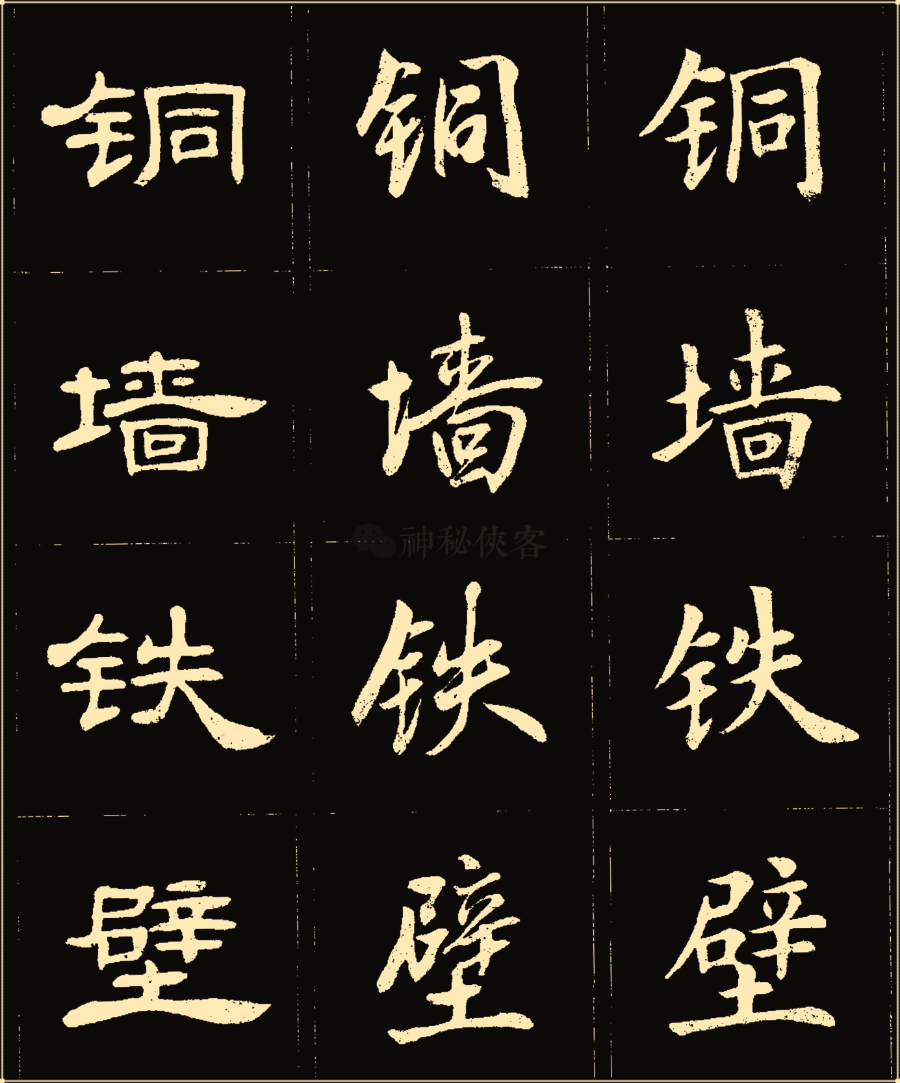 铜 铜 铜
墙 墙 墙
神秘侠客
铁 铁 铁
壁 壁 壁